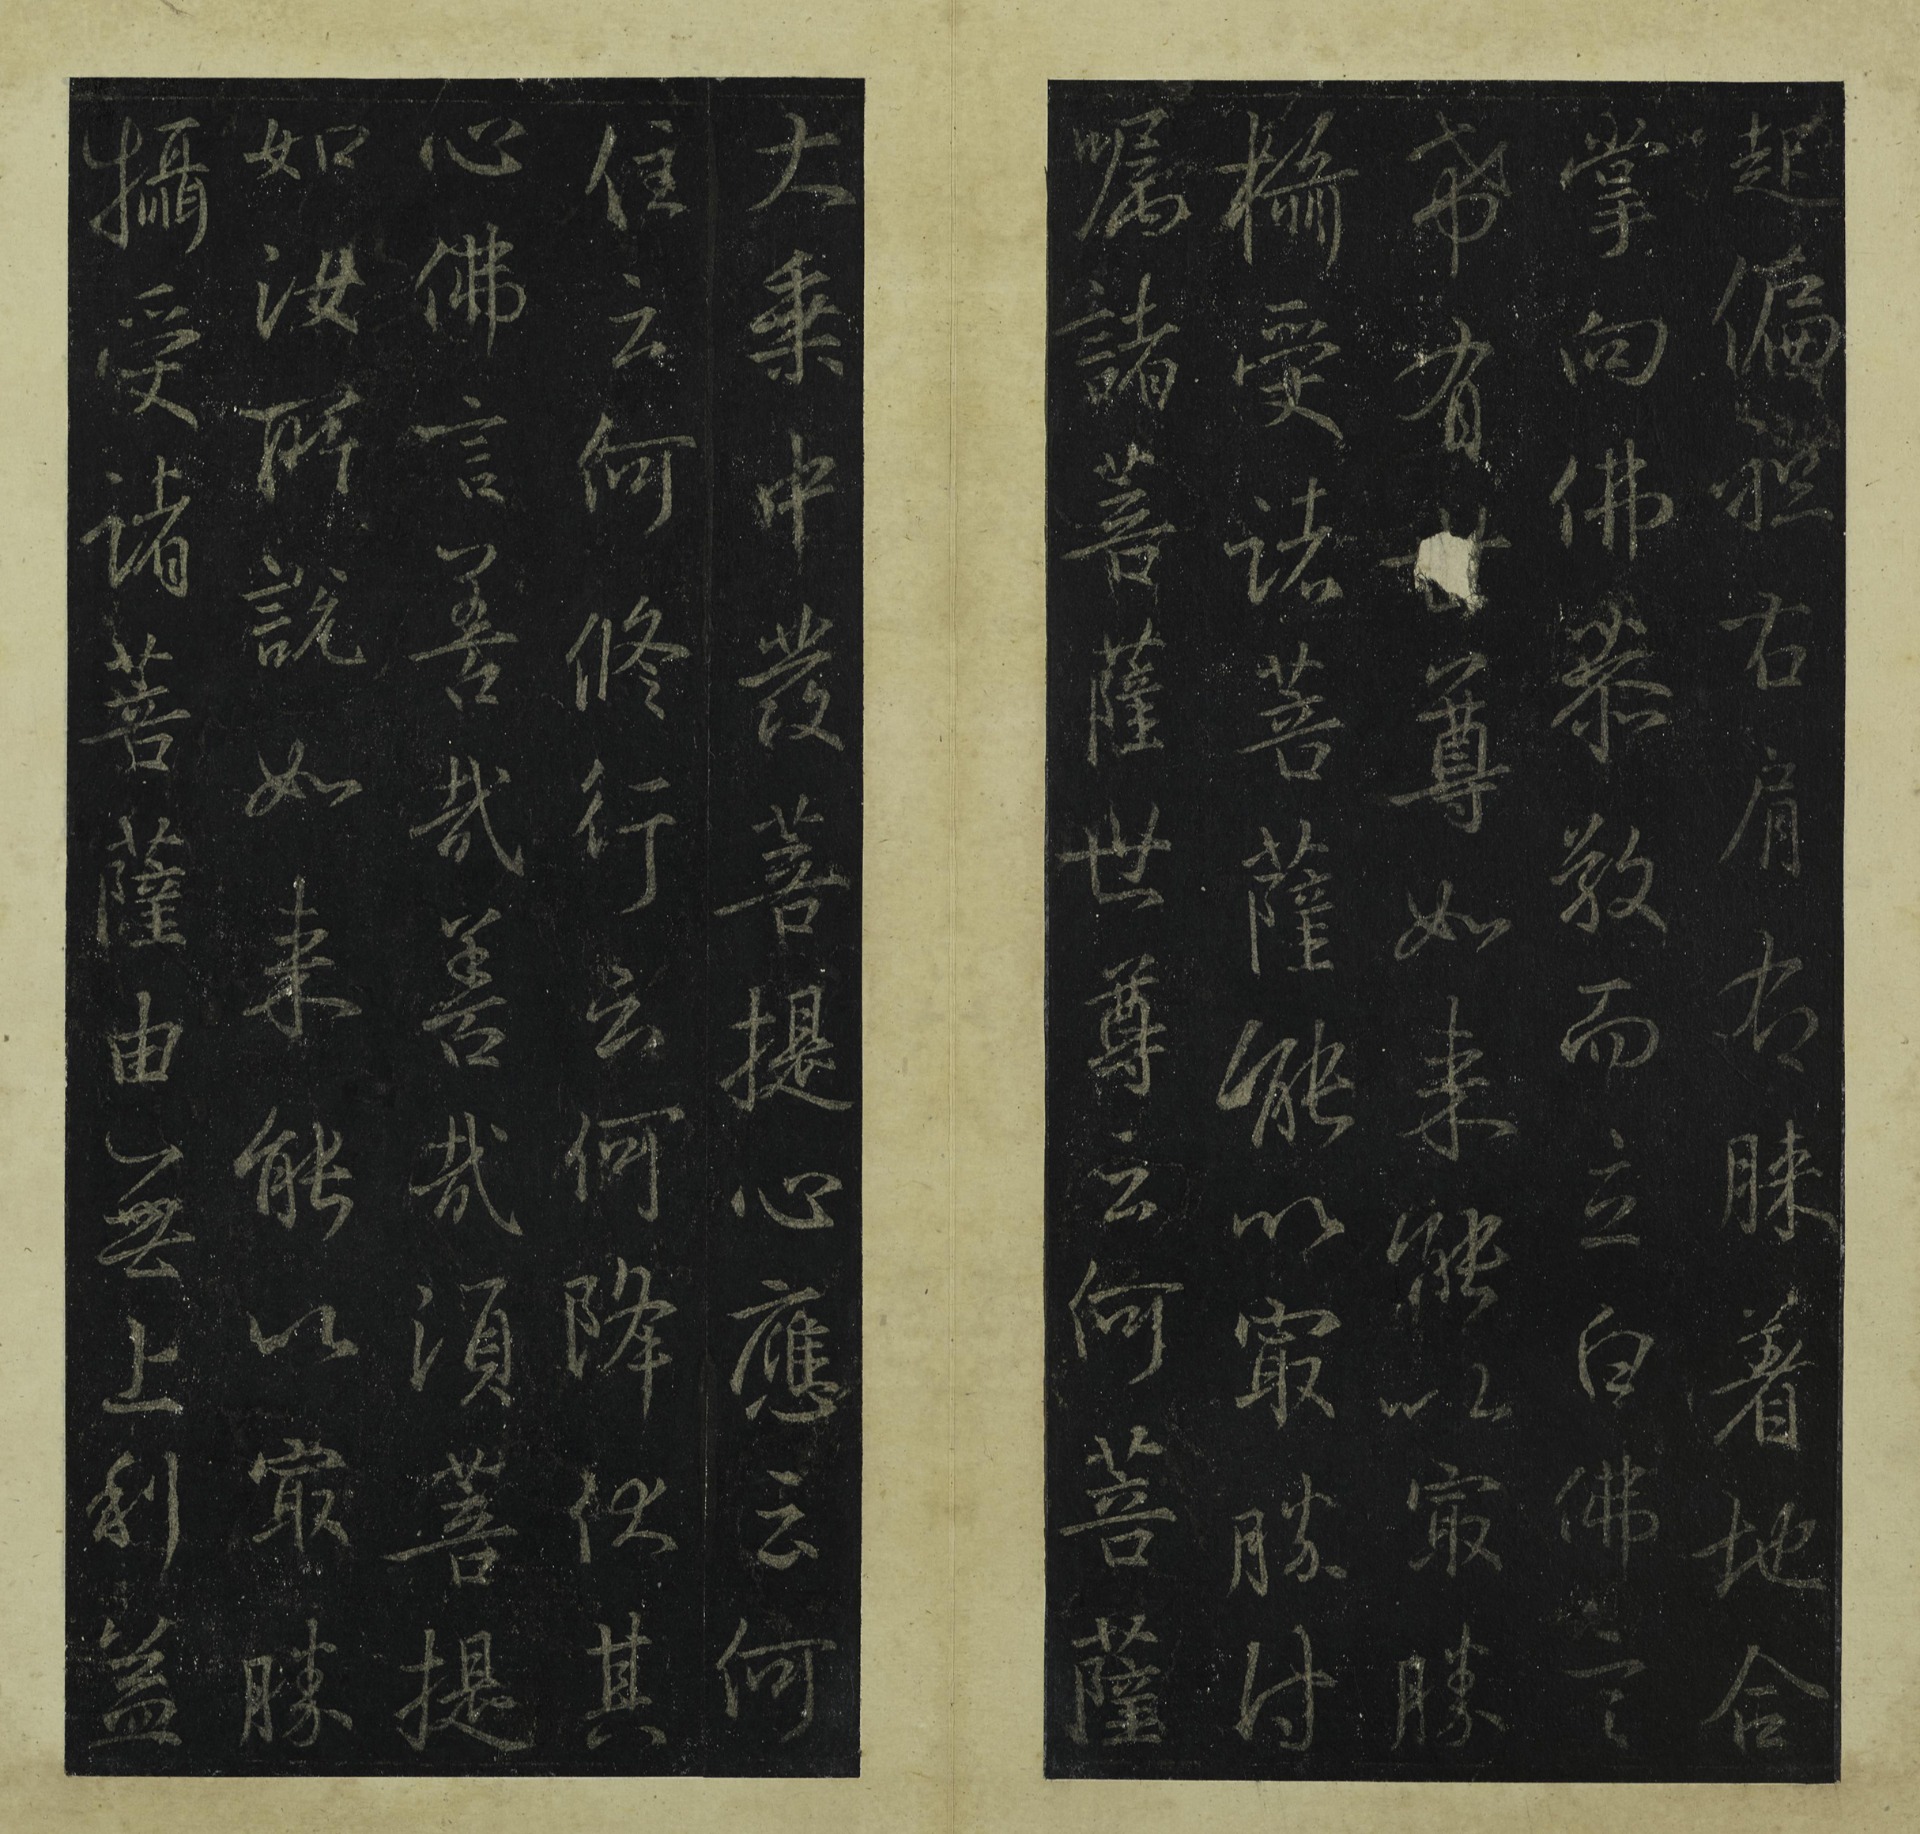 起偏袒右肩右膝著地合
掌向佛恭敬而立白佛言
希有世尊如来能以最勝
攝受諸菩薩能以最勝付
嘱諸菩薩世尊云何菩薩
大乘中發菩提心應云何
住云何修行云何降伏其
心佛言善哉善哉須菩提
如汝所說如来能以最勝
攝受諸菩薩由無上利益